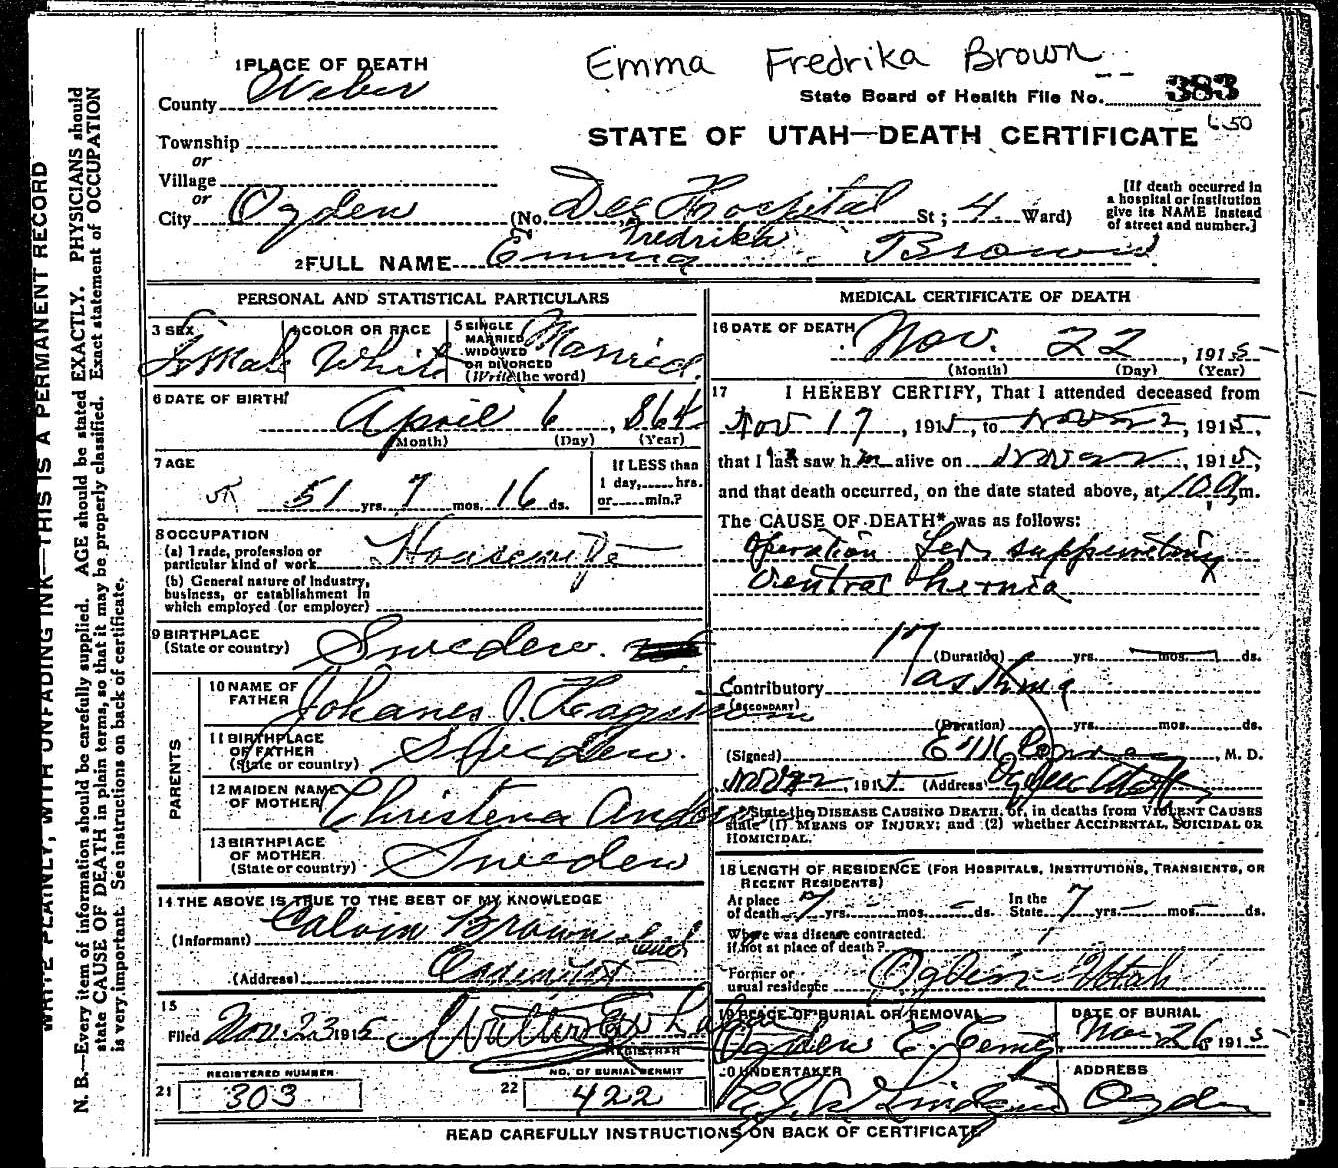 Emma Fredrika Brown
1 PLACE OF DEATH
County Weber
State Board of Health File No. 383
650
STATE OF UTAH—DEATH CERTIFICATE
Township
or
Village
or
City Ogden (No. Dee Hospital St; 4 Ward)
[If death occurred in a hospital or institution give its NAME instead of street and number.]
Fredrika
2 FULL NAME Emma Brown
PERSONAL AND STATISTICAL PARTICULARS
3 SEX Female
4 COLOR OR RACE White
5 SINGLE MARRIED WIDOWED OR DIVORCED (Write the word) Married.
6 DATE OF BIRTH
April 6, 864
(Month) (Day) (Year)
7 AGE
51 yrs. 7 mos. 16 ds.
If LESS than 1 day, hrs. or min.?
8 OCCUPATION
(a) Trade, profession or particular kind of work Housewife
(b) General nature of Industry, business, or establishment in which employed (or employer)
9 BIRTHPLACE
(State or country) Sweden.
PARENTS
10 NAME OF FATHER Johanes J. Hagstrom
11 BIRTHPLACE OF FATHER
(State or country) Sweden.
12 MAIDEN NAME OF MOTHER Christena
13 BIRTHPLACE OF MOTHER
(State or country) Sweden
14 THE ABOVE IS TRUE TO THE BEST OF MY KNOWLEDGE
(Informant) Calvin Brown
(Address)
15
Filed Nov. 23 1915
REGISTRAR
REGISTERED NUMBER
21 303
NO. OF BURIAL PERMIT
22 422
MEDICAL CERTIFICATE OF DEATH
16 DATE OF DEATH
Nov. 22, 1915
(Month) (Day) (Year)
17 I HEREBY CERTIFY, That I attended deceased from
Nov 17, 1915, to Nov 22, 1915,
that I last saw h alive on Nov 22, 1915,
and that death occurred, on the date stated above, at 10 a m.
The CAUSE OF DEATH* was as follows:
Operation for suppurating
Ventral hernia
(Duration) yrs. mos. ds.
Contributory asthma
(SECONDARY)
(Duration) yrs. mos. ds.
(Signed) M. D.
Nov 22, 1915 (Address) Ogden Utah
*State the DISEASE CAUSING DEATH, or, in deaths from VIOLENT CAUSES
state (1) MEANS OF INJURY; and (2) whether ACCIDENTAL, SUICIDAL OR
HOMICIDAL.
18 LENGTH OF RESIDENCE (FOR HOSPITALS, INSTITUTIONS, TRANSIENTS, OR
RECENT RESIDENTS)
At place of death 7 yrs. mos. ds. In the State 7 yrs. mos. ds.
Where was disease contracted.
if not at place of death?
Former or usual residence Ogden Utah
19 PLACE OF BURIAL OR REMOVAL
Ogden C. Cemt.
DATE OF BURIAL
Nov 26 1915
20 UNDERTAKER
ADDRESS
Ogden
READ CAREFULLY INSTRUCTIONS ON BACK OF CERTIFICATE
WRITE PLAINLY, WITH UNFADING INK—THIS IS A PERMANENT RECORD
N. B.—Every item of information should be carefully supplied. AGE should be stated EXACTLY. PHYSICIANS should
state CAUSE OF DEATH in plain terms, so that it may be properly classified. Exact statement of OCCUPATION
is very important. See instructions on back of certificate.